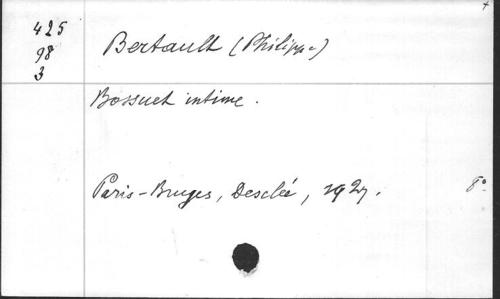 425
98
3
Bertault (Philippe)
Bossuet intime.
Paris-Bruges, Desclée, 1927. 8°